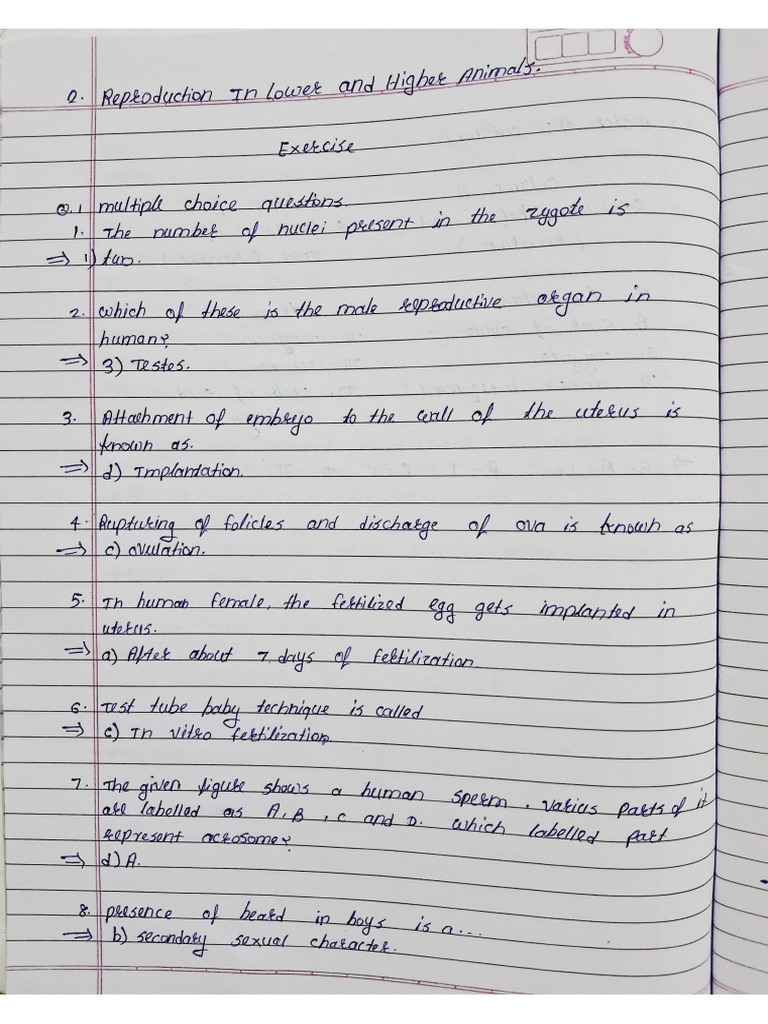 2. Reproduction In Lower and Higher Animals.
Exercise
Q.1 multiple choice questions.
1. The number of nuclei present in the zygote is
⇒ 1) two.
2. which of these is the male reproductive organ in
human?
⇒ 3) Testes.
3. Attachment of embryo to the wall of the uterus is
known as.
⇒ d) Implantation.
4. Rupturing of folicles and discharge of ova is known as
⇒ c) ovulation.
5. In human female, the fertilized egg gets implanted in
uterus.
⇒ a) After about 7 days of fertilization.
6. Test tube baby technique is called
⇒ c) In vitro fertilization.
7. The given figure shows a human sperm. Varius parts of it
are labelled as A, B, C and D. which labelled part
represent acrosome?
⇒ d) A.
8. presence of beard in boys is a...
⇒ b) secondary sexual character.